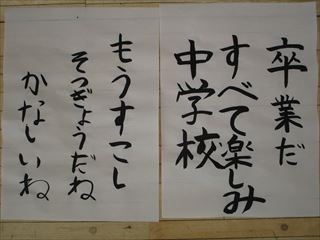 卒業だ
すべて楽しみ
中学校
もうすこし
そつぎょうだね
かなしいね